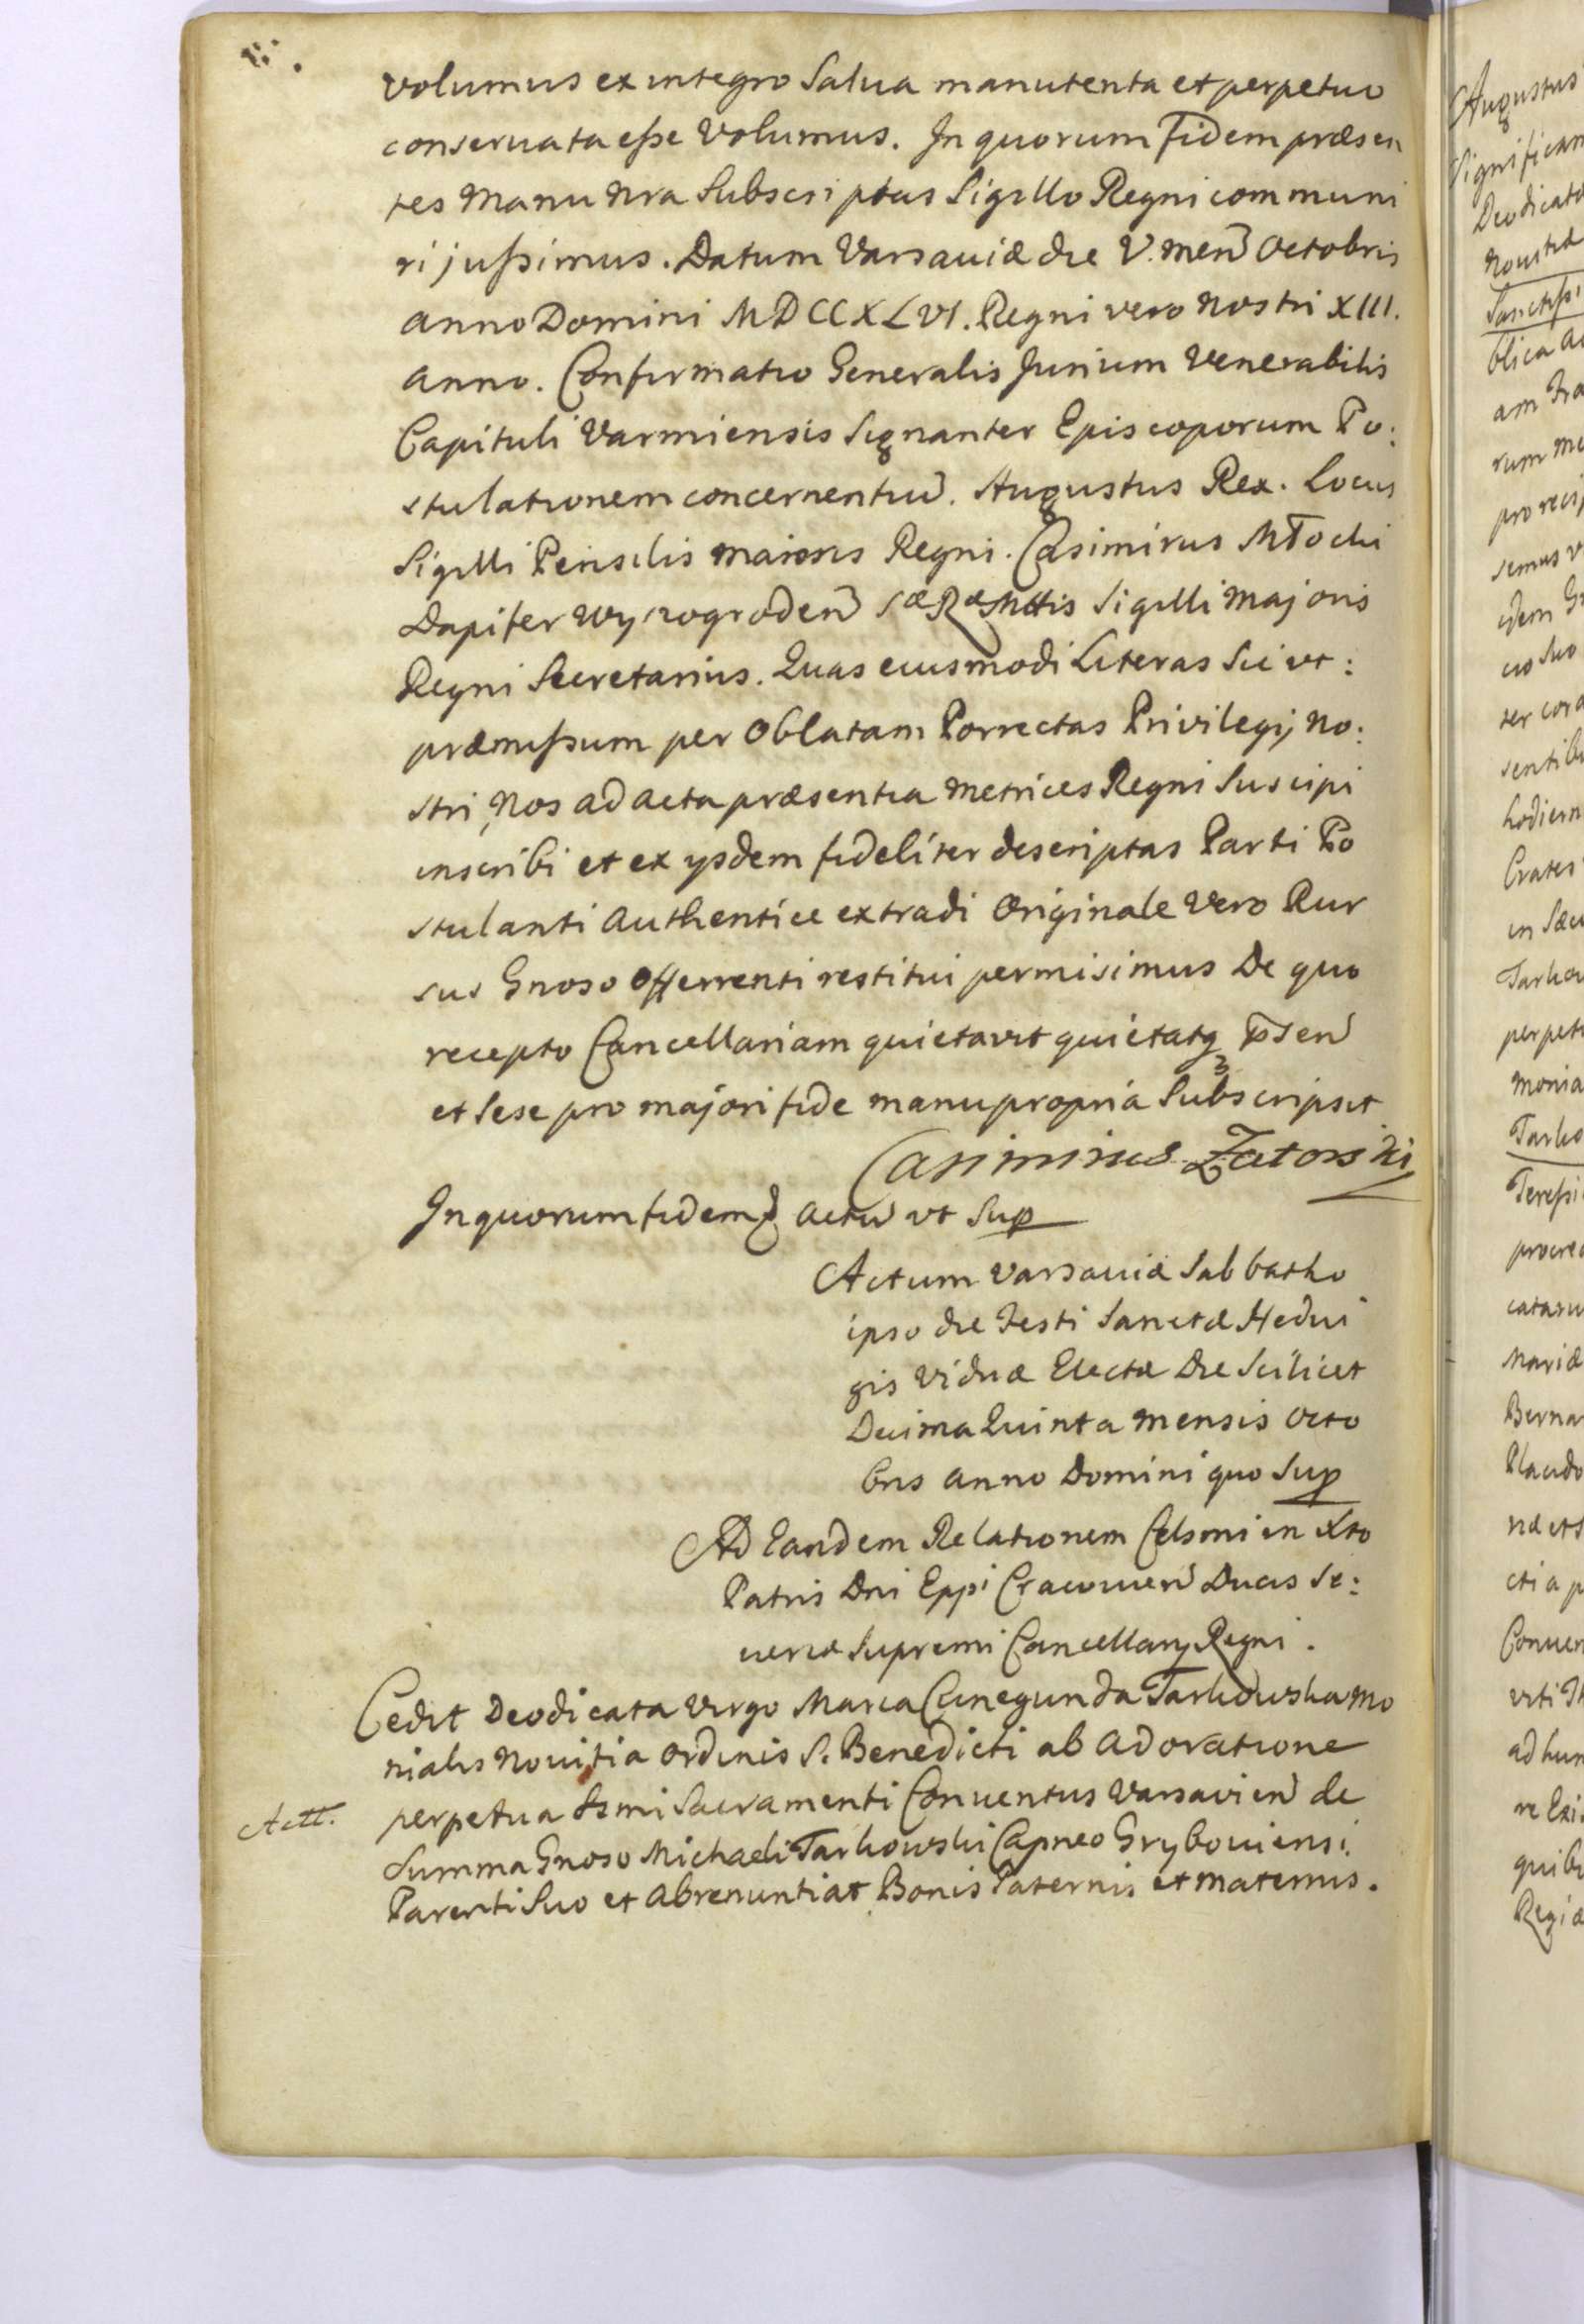 volumus ex integro Salua manutenta et perpetuo
conseruata eße Volumus. In quorum fidem præsen
tes Manu Nra Subscriptas Sigillo Regni communi
ri jußimus. Datum Varsauiæ die V. men Octobris
anno Domini MDCCXLVI. Regni vero Nostri XIII.
anno. Confirmatio Generalis Jurium Venerabilis
Capituli Varmiensis Signanter Episcoporum Po:
stulationem concernentiu. Augustus Rex. Locus
Sigilli Pensilis maioris Regni. Casimirus Młocki
Dapifer Wyszogroden Sæ Ræ Mttis Sigilli Majoris
Regni Secretarius. Quas eiusmodi Literas Sic vt:
præmißum per Oblatam Porrectas Privilegij No:
stri, Nos ad acta præsentia Metrices Regni Suscipi
inscribi et ex ysdem fideliter descriptas Parti Po
stulanti Authentice extradi Originale Vero Rur
sus Gnoso Offerrenti restitui permisimus De quo
recepto Cancellariam quietavit quietatq
et Sese pro majori fide manu propria Subscripsit
Casimirus Zatorski
In quorum fidem actu vt Sup
Actum Varsauiæ Sabbatho
ipso die Festi Sanctæ Hedui
gis Viduæ Electæ Die Scilicet
Decima Quinta Mensis Octo
bris Anno Domini quo Sup
Ad Eandem Relationem Celsmi in Xto
Patris Dni Eppi Cracouien Ducis Se:
ueriæ Supremi Cancellarij Regni.
Cedit Deodicata Virgo Maria Cunegunda Tarkowska Mo
nialis Nouitia Ordinis S. Benedicti ab Adoratione
Actt. perpetua Ssmi Sacramenti Conuentus Varsavien de
Summa Gnoso Michaeli Tarkowski Capneo Grybouiensi.
Parenti Suo et Abrenuntiat Bonis Paternis et Maternis.
Augustus
Significam
Deodicata
blica
am
semus
idem
hodiern
Crates
perpet
monia
Tarko
Mariæ
Berna
Placido
Conuen
ad hun
quib
Regiæ